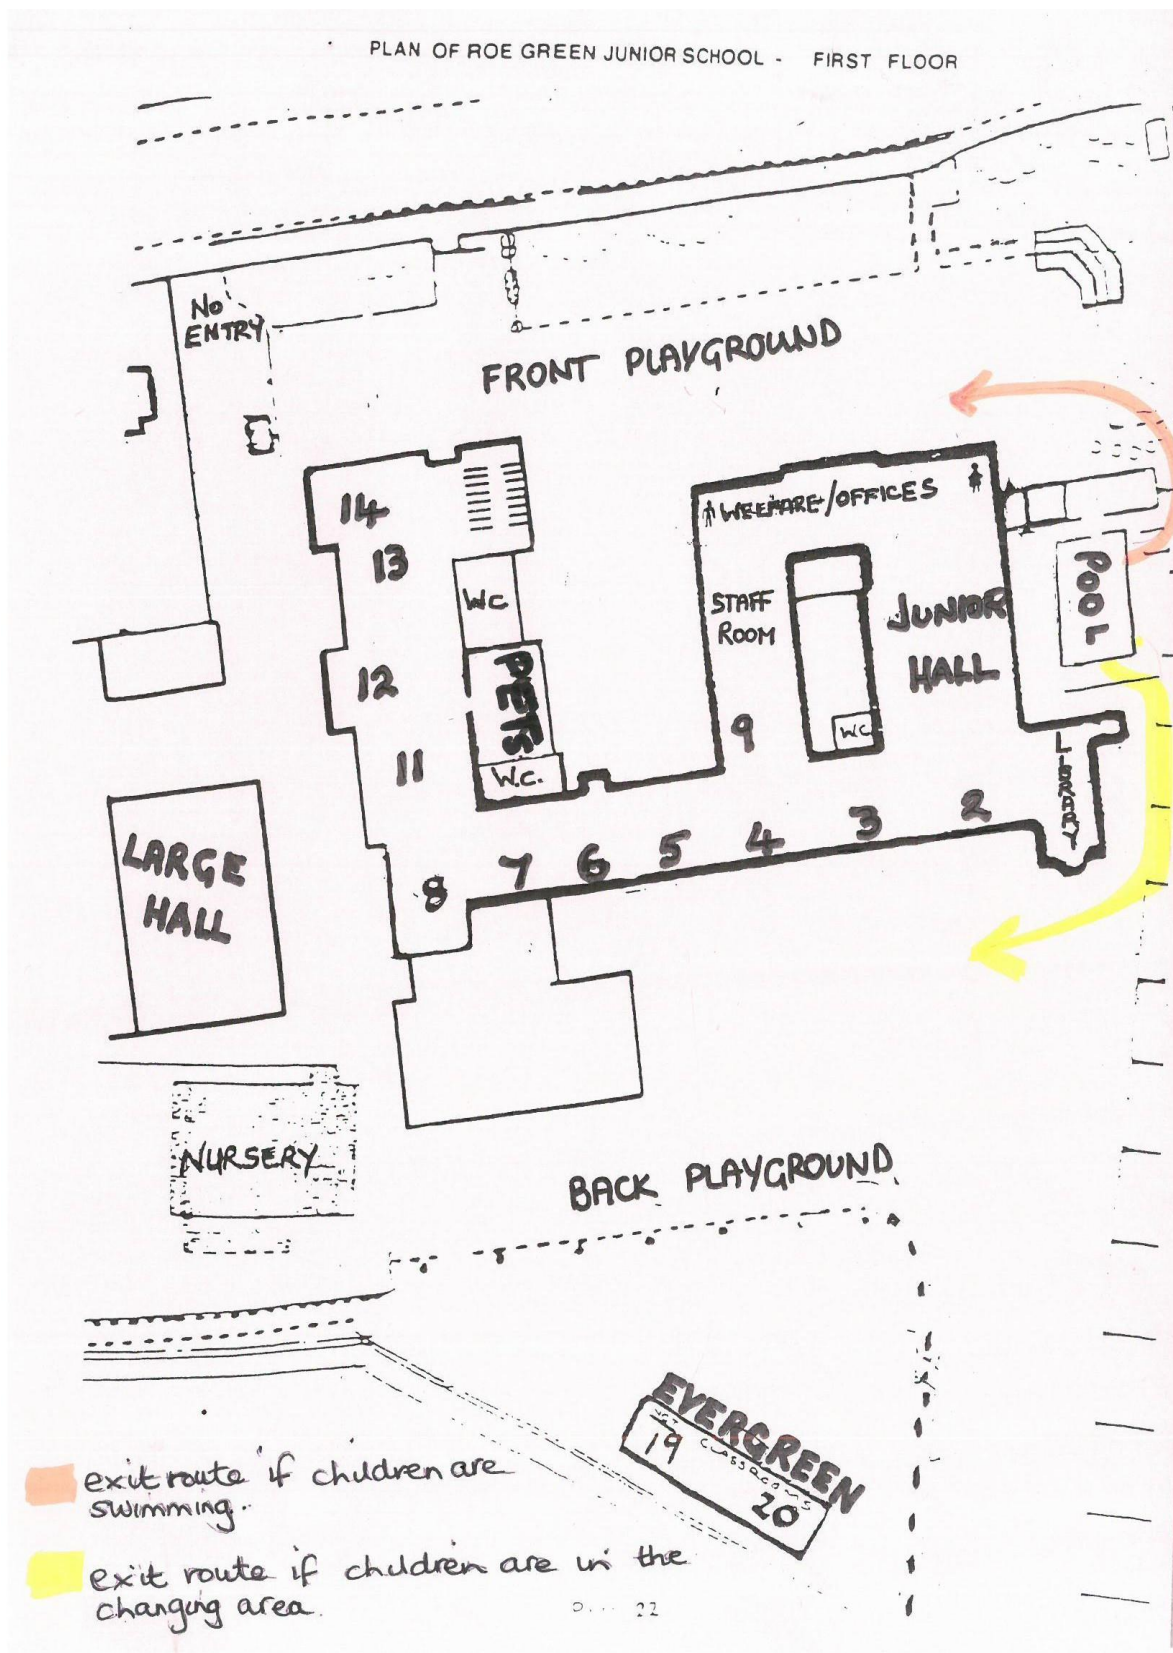 PLAN OF ROE GREEN JUNIOR SCHOOL - FIRST FLOOR
NO
ENTRY
FRONT PLAYGROUND
14
13
WC
PETS
W.C.
12
11
8
7
6
5
4
3
2
9
WELFARE/OFFICES
STAFF
ROOM
JUNIOR
HALL
WC
POOL
LIBRARY
LARGE
HALL
NURSERY
BACK PLAYGROUND
EVERGREEN
CLASSROOMS
19
20
exit route if children are
swimming.
exit route if children are in the
changing area.
22